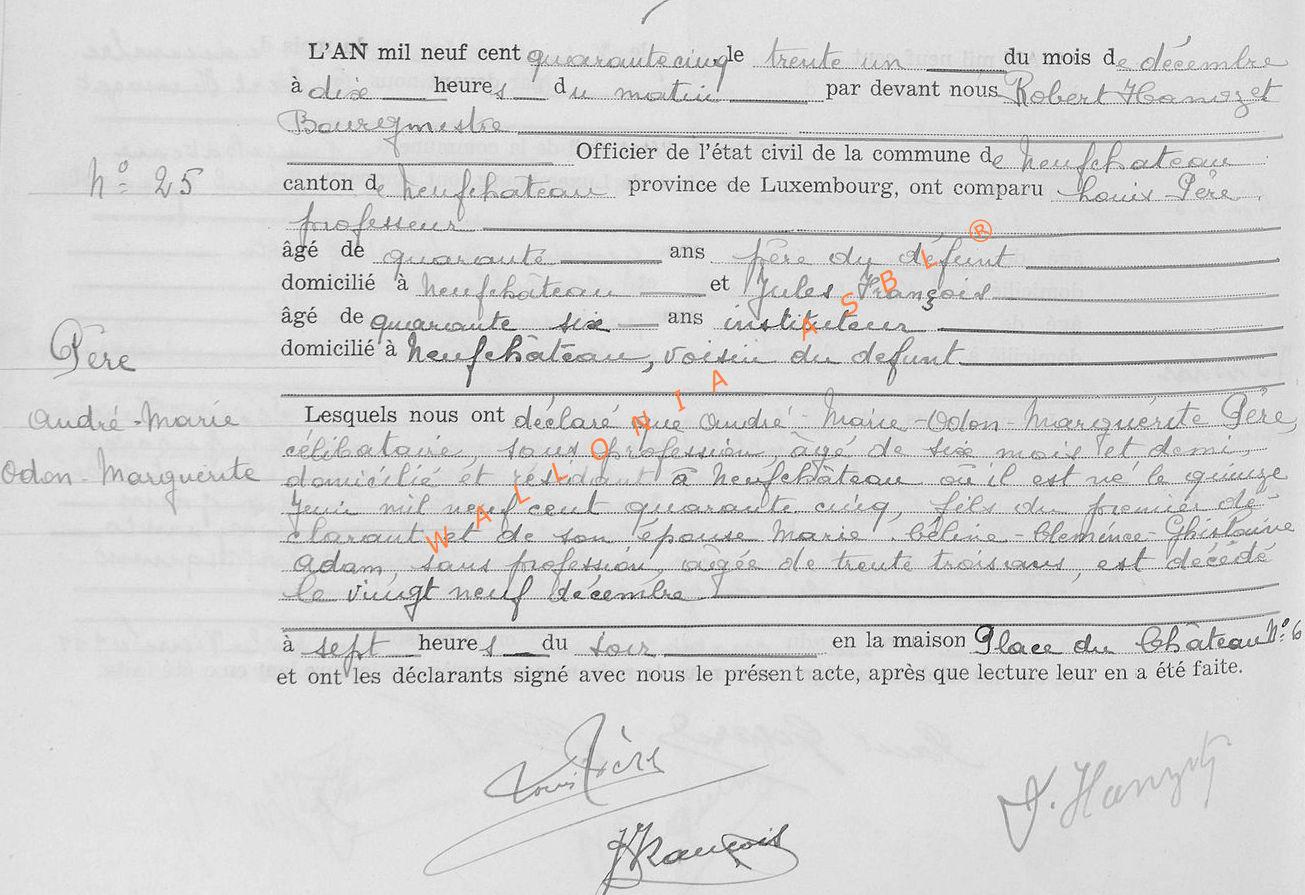 L'AN mil neuf cent quarante cinq le trente un du mois de décembre
à dix heures du matin par devant nous Robert Hanozet
Bourgmestre
Officier de l'état civil de la commune de Neufchateau
N° 25
canton de Neufchateau province de Luxembourg, ont comparu Louis Père
professeur
âgé de quarante ans père du défunt
domicilié à Neufchâteau et Jules François
âgé de quarante six ans instituteur
domicilié à Neufchâteau, voisin du defunt
Père
André-Marie
Odon-Marguerite
Lesquels nous ont déclaré que André-Marie-Odon-Marguerite Père,
célibataire, sans profession, âgé de six mois et demi,
domicilié et résidant à Neufchâteau où il est né le quinze
Juin mil neuf cent quarante cinq, fils du premier dé-
clarant et de son épouse Marie-Céline-Clémence-Ghislaine
Adam, sans profession, âgée de trente trois ans, est décédé
le vingt neuf décembre
à sept heures du soir en la maison Place du Château N° 6
et ont les déclarants signé avec nous le présent acte, après que lecture leur en a été faite.
Louis Père
JFrançois
WALLONIA ASBL ®